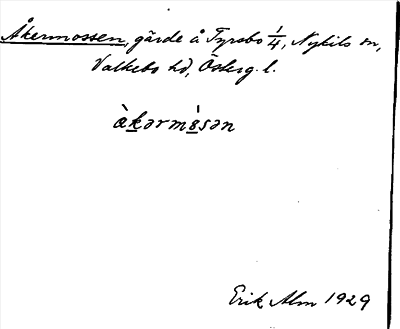 Åkermossen, gärde å Tyrsbo 1/4, Nykils sn,
Valkebo hd, Österg. l.
àkərmósən
Erik Alm 1929